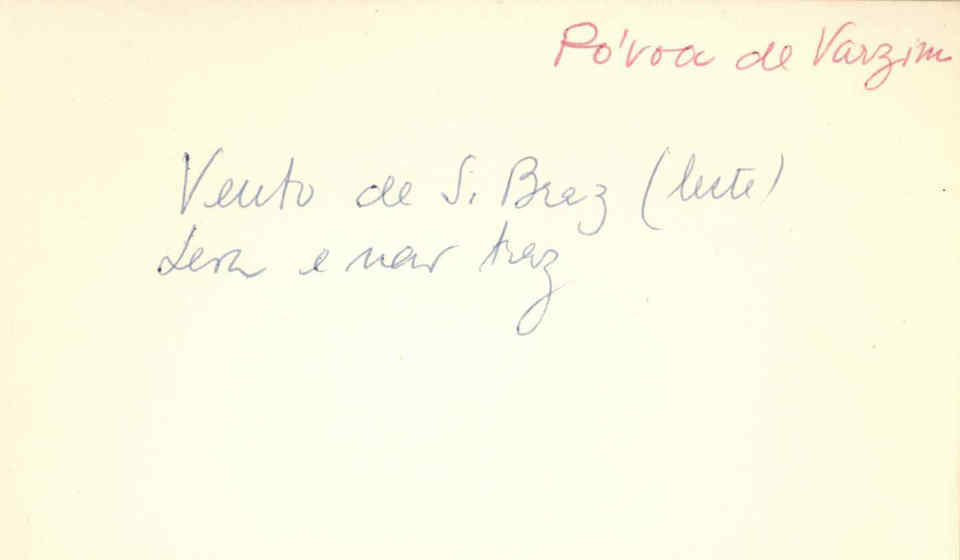 Póvoa de Varzim
Vento de S. Braz (leste)
Leva e não traz